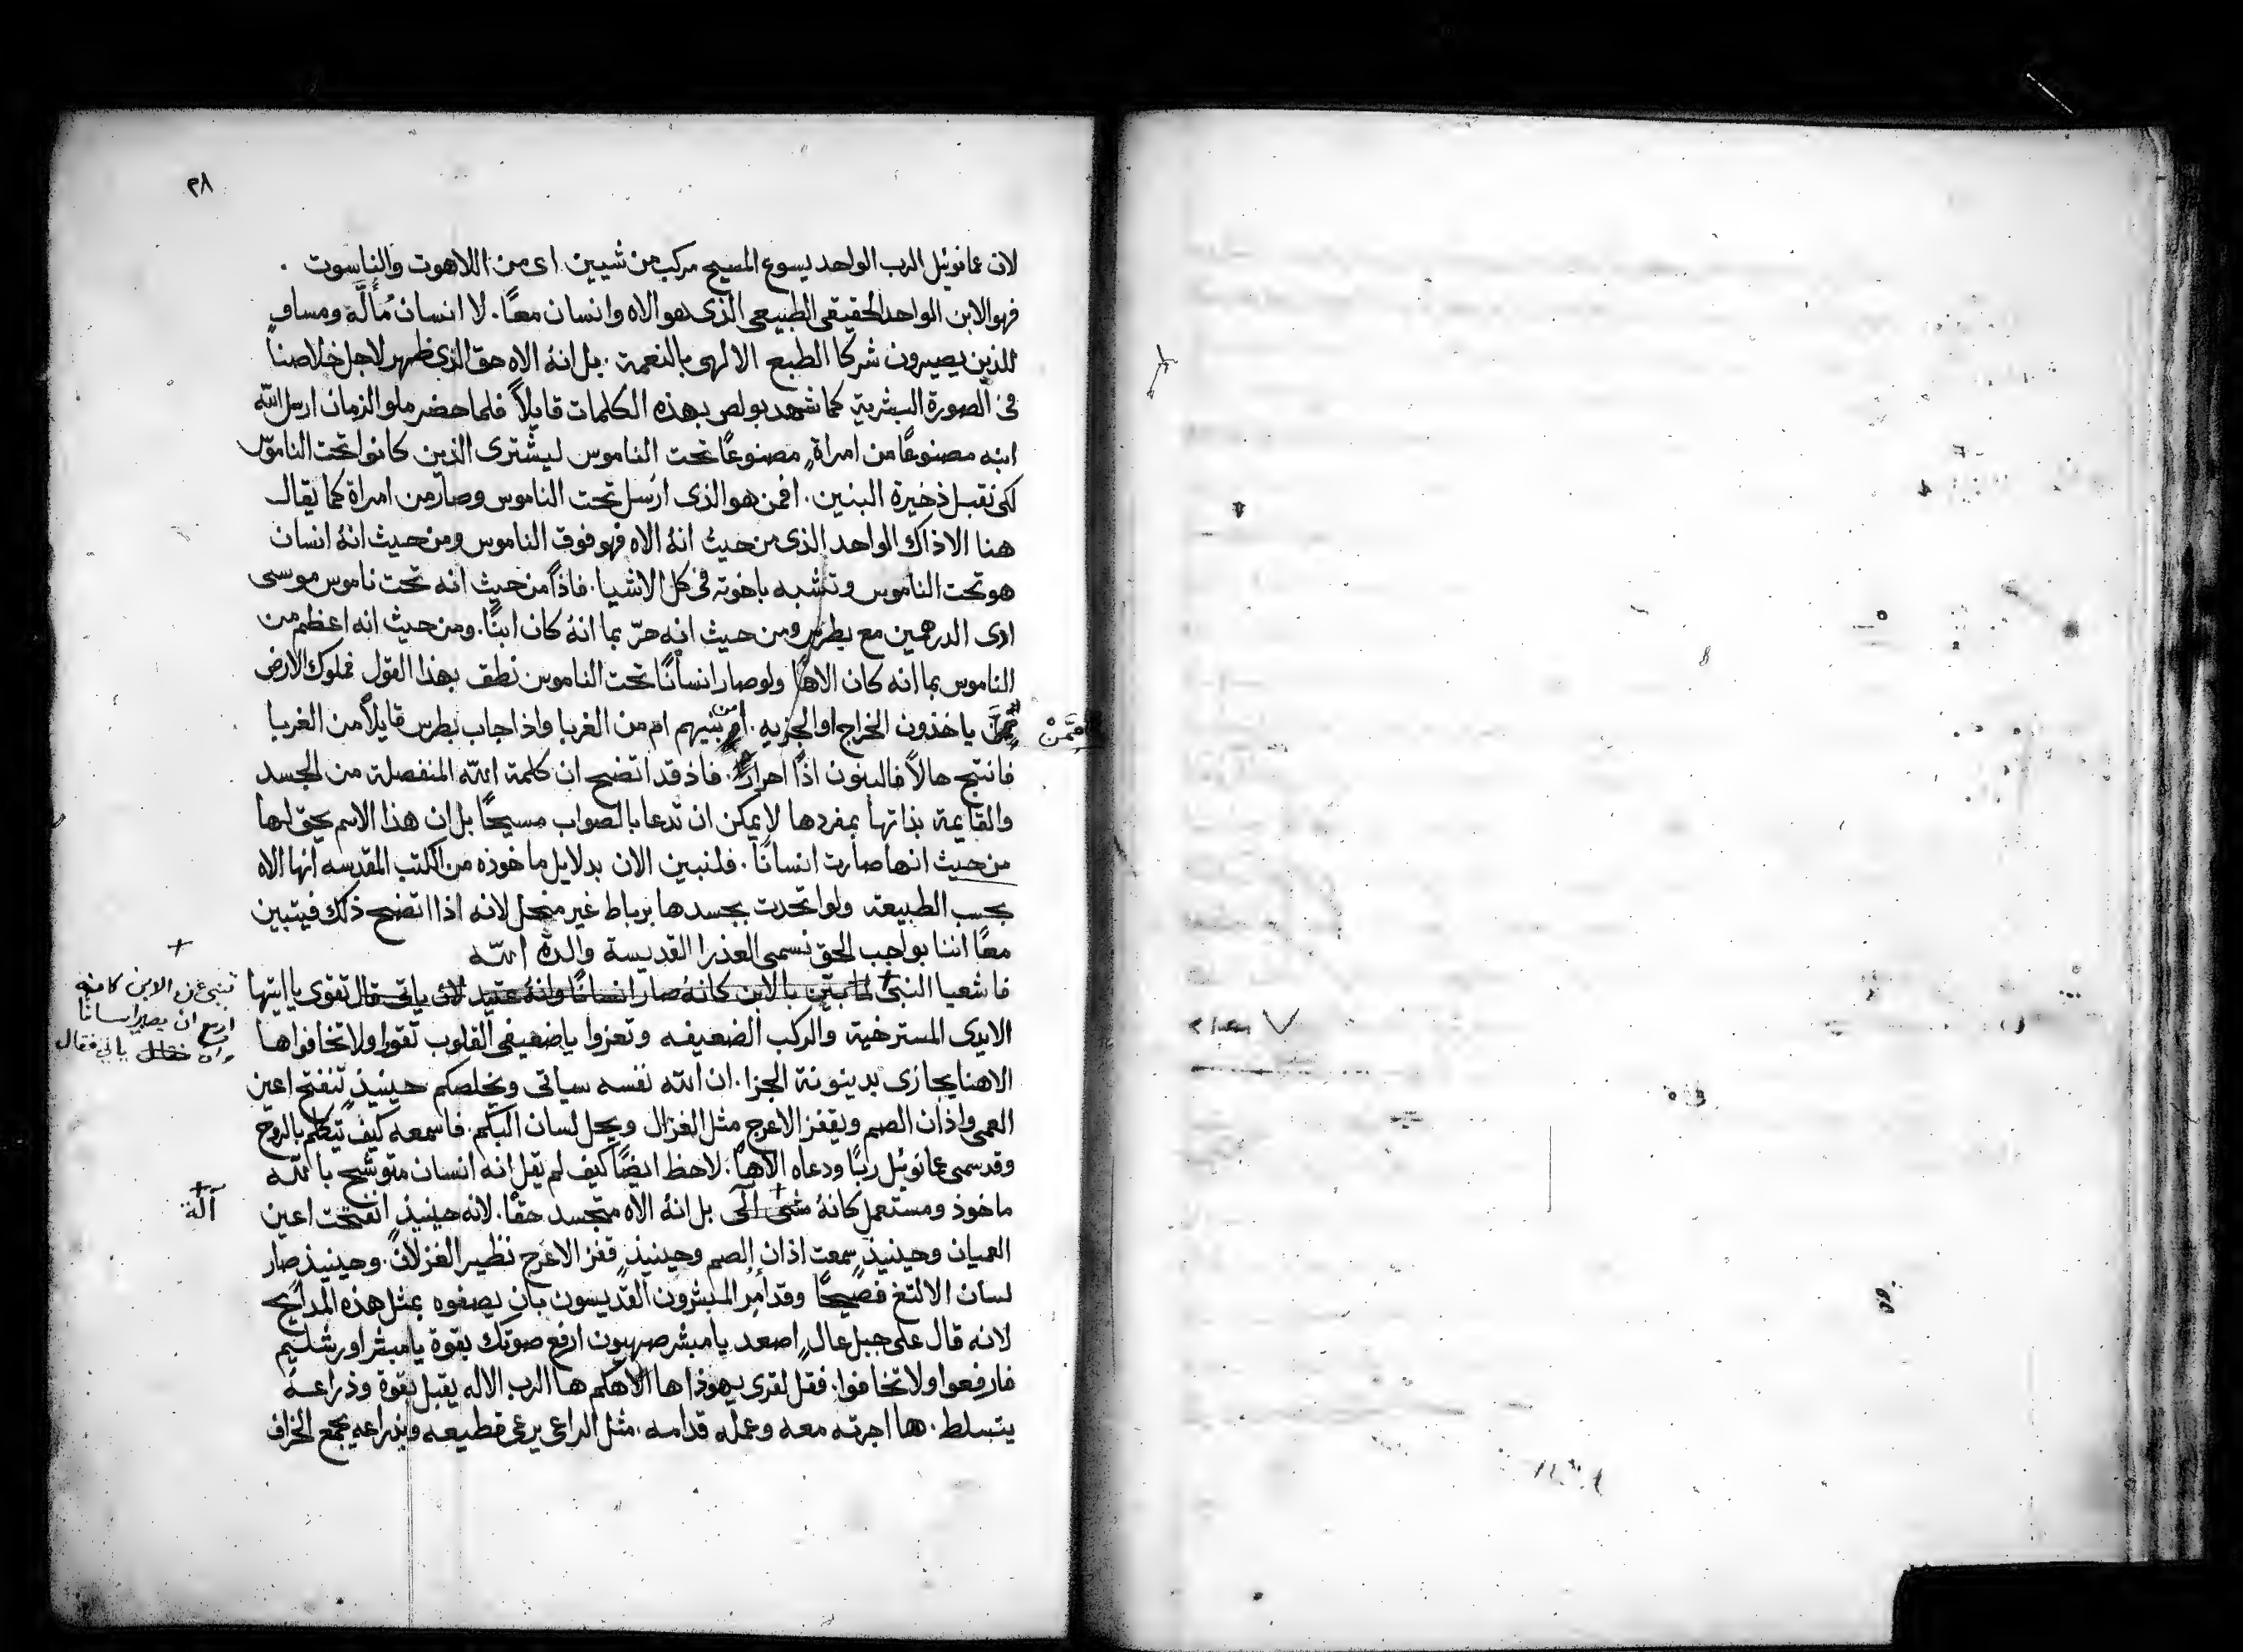 ٢٨
لان عمانوئيل الرب الواحد يسوع المسيح مركب من شيين اى من اللاهوت والناسوت .
فهو الابن الواحد الحقيقى الطبيعى الذى هو الاه وانسان معًا . لا انسان مُأَلَّه ومساوٍ
للذين يصيرون شركا الطبع الالهى بالنعمة . بل انهُ الاه حق الذى ظهر لاجل خلاصنا
فى الصورة البشرية كما شهد بولص بهذه الكلمات قايلاً فلما حضر ملو الزمان ارسل الله
ابنه مصنوعًا من امراةٍ مصنوعًا تحت الناموس ليشترى الذين كانوا تحت الناموس
لكى نقبل ذخيرة البنين . افمن هو الذى ارسل تحت الناموس وصار من امراة كما يقال
هنا الا ذاك الواحد الذى من حيث انهُ الاه فهو فوق الناموس ومن حيث انهُ انسان
هو تحت الناموس وتشبه باخوته فى كل الاشيا . فاذاً من حيث انه تحت ناموس موسى
ادى الدرهمين مع بطرس ومن حيث انه حرّ بما انهُ كان ابنًا . ومن حيث انه اعظم من
الناموس بما انه كان الاهًا ولو صار انسانًا تحت الناموس نطق بهذا القول فملوك الارض
ممَّنْ ياخذون الخراج او الجزيه . امن بنيهم ام من الغربا واذ اجاب بطرس قايلاً من الغربا
فانتج حالاً فالبنون اذًا احرار . فاذ قد اتضح ان كلمة الله المنفصلة من الجسد
والقايمة بذاتها بمفردها لا يمكن ان تدعا بالصواب مسيحًا بل ان هذا الاسم يحق لها
من حيث انها صارت انسانًا . فلنبين الان بدلايل ماخوذه من الكتب المقدسه انها الاه
بحسب الطبيعة ولو اتحدت بجسدها برباط غير منحل لانه اذا اتضح ذلك فيتبين
معًا اننا بواجب الحق نسمى العذرا القديسة والدة الله
فاشعيا النبى لما تبين بالابن كانهُ صار انسانًا وانهُ عتيد لان ياتى قال تقوى يا ايتها
الايدى المسترخية والركب الضعيفه وتعزوا يا ضعيفى القلوب تقووا ولا تخافوا ها
الاهنا يجازى بدينونة الجزا . ان الله نفسه سياتى ويخلصكم حينيذٍ تنفتح اعين
العمى واذان الصم ويقفز الاعرج مثل الغزال ويحل لسان البكم . فاسمعه كيف يتكلم بالروح
وقد سمى عمانوئيل ربًا ودعاه الاهًا . لاحظ ايضًا كيف لم يقل انه انسان متوشح بالله
ماخوذ ومستعمل كانهُ شى آلى بل انهُ الاه متجسد حقًا . لانه حينيذٍ انفتحت اعين
العميان وحينيذٍ سمعت اذان الصم وحينيذٍ قفز الاعرج نظير الغزلان . وحينيذ صار
لسان الالتغ فصيحًا وقد أمر المبشرون القديسون بان يصفوه بمثل هذه المدايح
لانه قال على جبل عالٍ اصعد يا مبشر صهيون ارفع صوتك بقوة يا مبشر اورشليم
فارفعوا ولا تخافوا . فقل لقرى يهوذا ها الاهكم ها الرب الاله يقبل بقوة وذراعهُ
يتسلط . ها اجرته معه وعمله قدامه . مثل الراعى يرعى قطيعه وبذراعه يجمع الخراف
ممَّنْ
تنبى عن الابن كانه
ازمع ان يصير انسانا
وان ياتى فقال
آلة